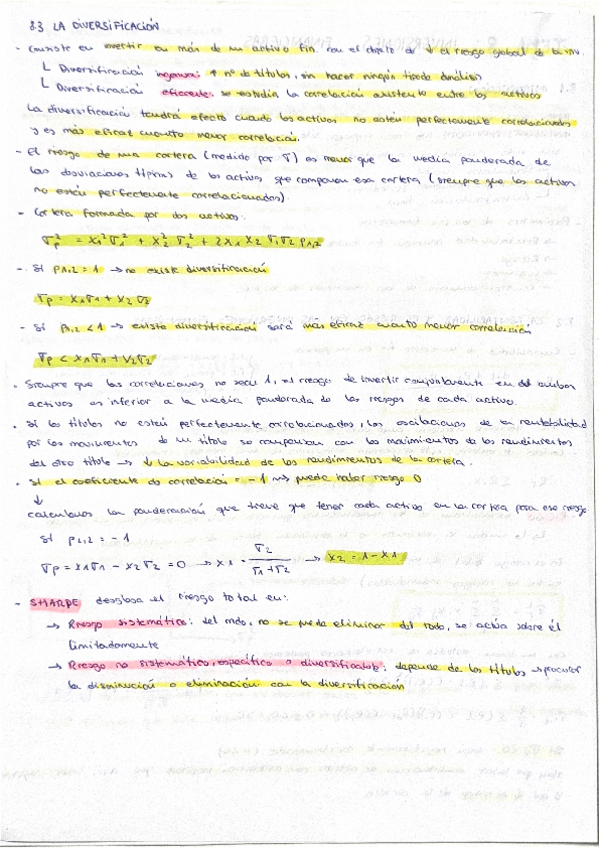 8.3 LA DIVERSIFICACIÓN
- Consiste en invertir en más de un activo fin. con el objeto de ↓ el riesgo global de la inv.
└ Diversificación ingenua: ↑ nº de títulos, sin hacer ningún tipo de análisis
└ Diversificación eficiente: se estudia la correlación existente entre los activos
La diversificación tendrá efecto cuando los activos no estén perfectamente correlacionados
y es más eficaz cuanto menor correlación.
- El riesgo de una cartera (medido por σ) es menor que la media ponderada de
las desviaciones típicas de los activos que componen esa cartera (siempre que los activos
no estén perfectamente correlacionados).
- Cartera formada por dos activos:
σp² = x1²σ1² + x2²σ2² + 2x1 x2 σ1σ2 ρ1,2
- Si ρ1,2 = 1 → no existe diversificación
σp = x1σ1 + x2σ2
- Si ρ1,2 < 1 → existe diversificación será más eficaz cuanto menor correlación
σp < x1σ1 + x2σ2
• Siempre que las correlaciones no sean 1, el riesgo de invertir conjuntamente en ambos
activos es inferior a la media ponderada de los riesgos de cada activo.
• Si los títulos no están perfectamente correlacionados, las oscilaciones de la rentabilidad
por los movimientos de un título se compensan con los movimientos de los rendimientos
del otro título → ↓ la variabilidad de los rendimientos de la cartera.
• Si el coeficiente de correlación = -1 → puede haber riesgo 0
↓
calculamos la ponderación que tiene que tener cada activo en la cartera para ese riesgo
Si ρ1,2 = -1
σp = x1σ1 - x2σ2 = 0 → x1 = σ2 / (σ1 + σ2) → x2 = 1 - x1
- SHARPE desglosa el riesgo total en:
→ Riesgo sistemático: del mdo, no se puede eliminar del todo, se actúa sobre él
limitadamente
→ Riesgo no sistemático, específico o diversificable: depende de los títulos → procurar
la disminución o eliminación con la diversificación